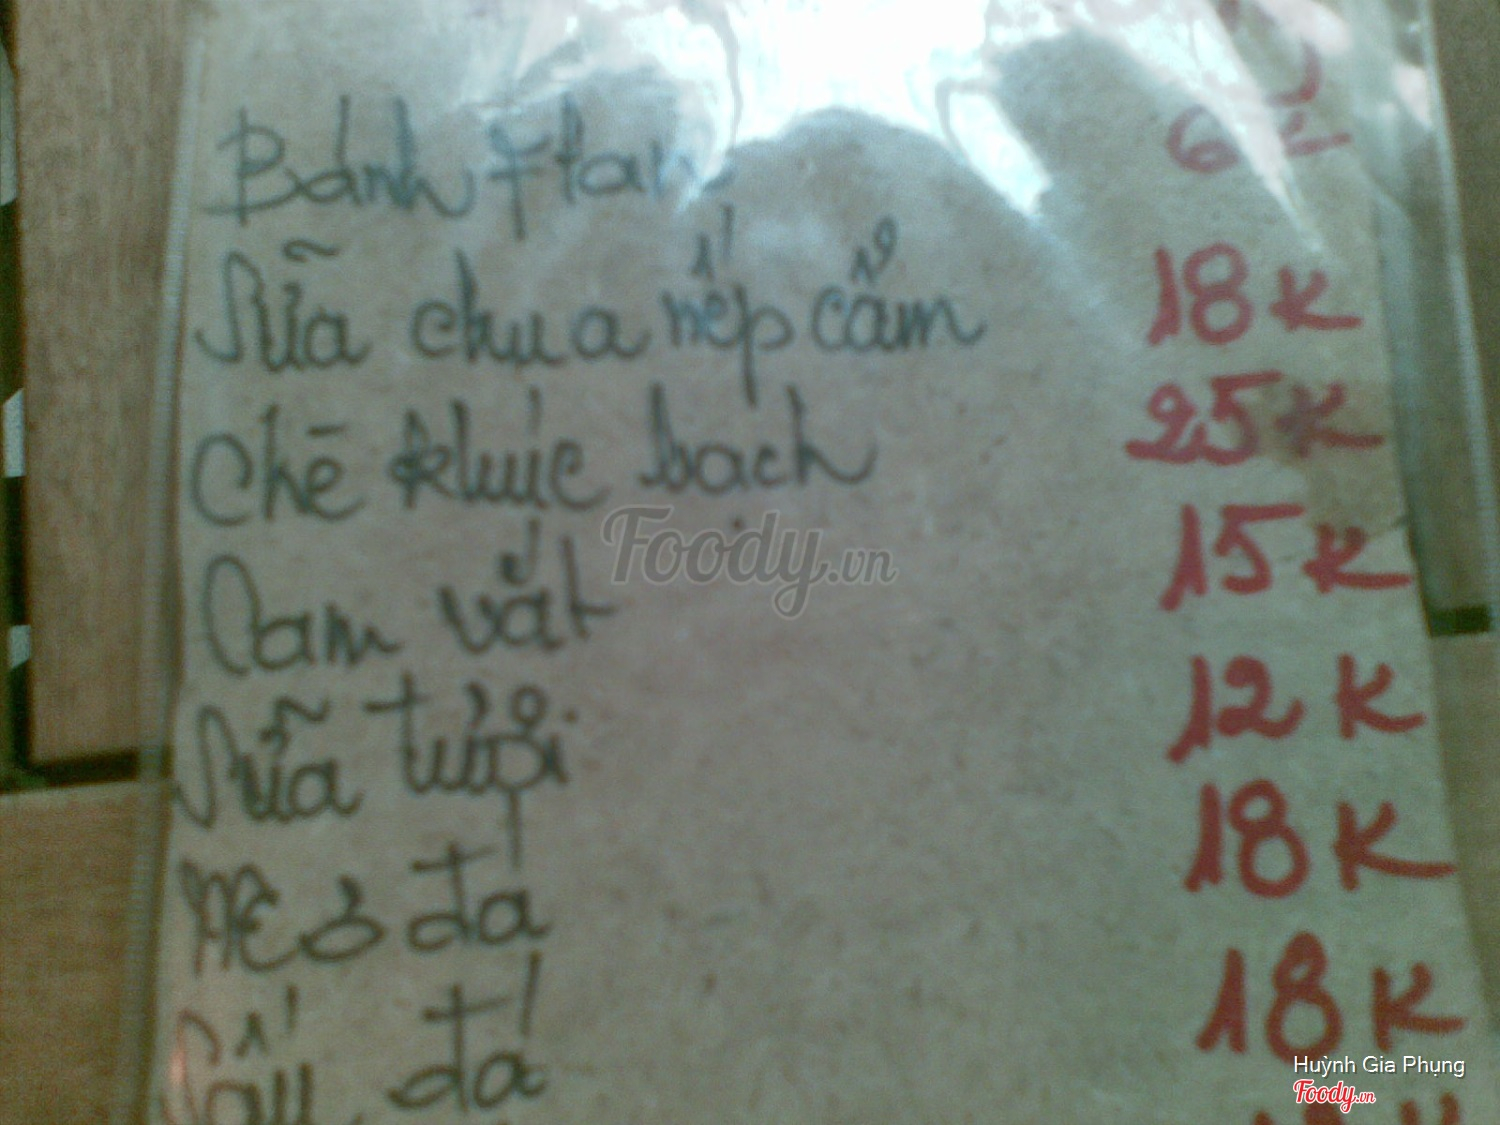 Bánh Flan 6K
Sữa chua nếp cẩm 18K
Chè khúc bạch 25K
Cam vắt 15K
Sữa tươi 12K
Me đá 18K
Sấu đá 18K
Foody.vn
Huỳnh Gia Phụng
Foody.vn